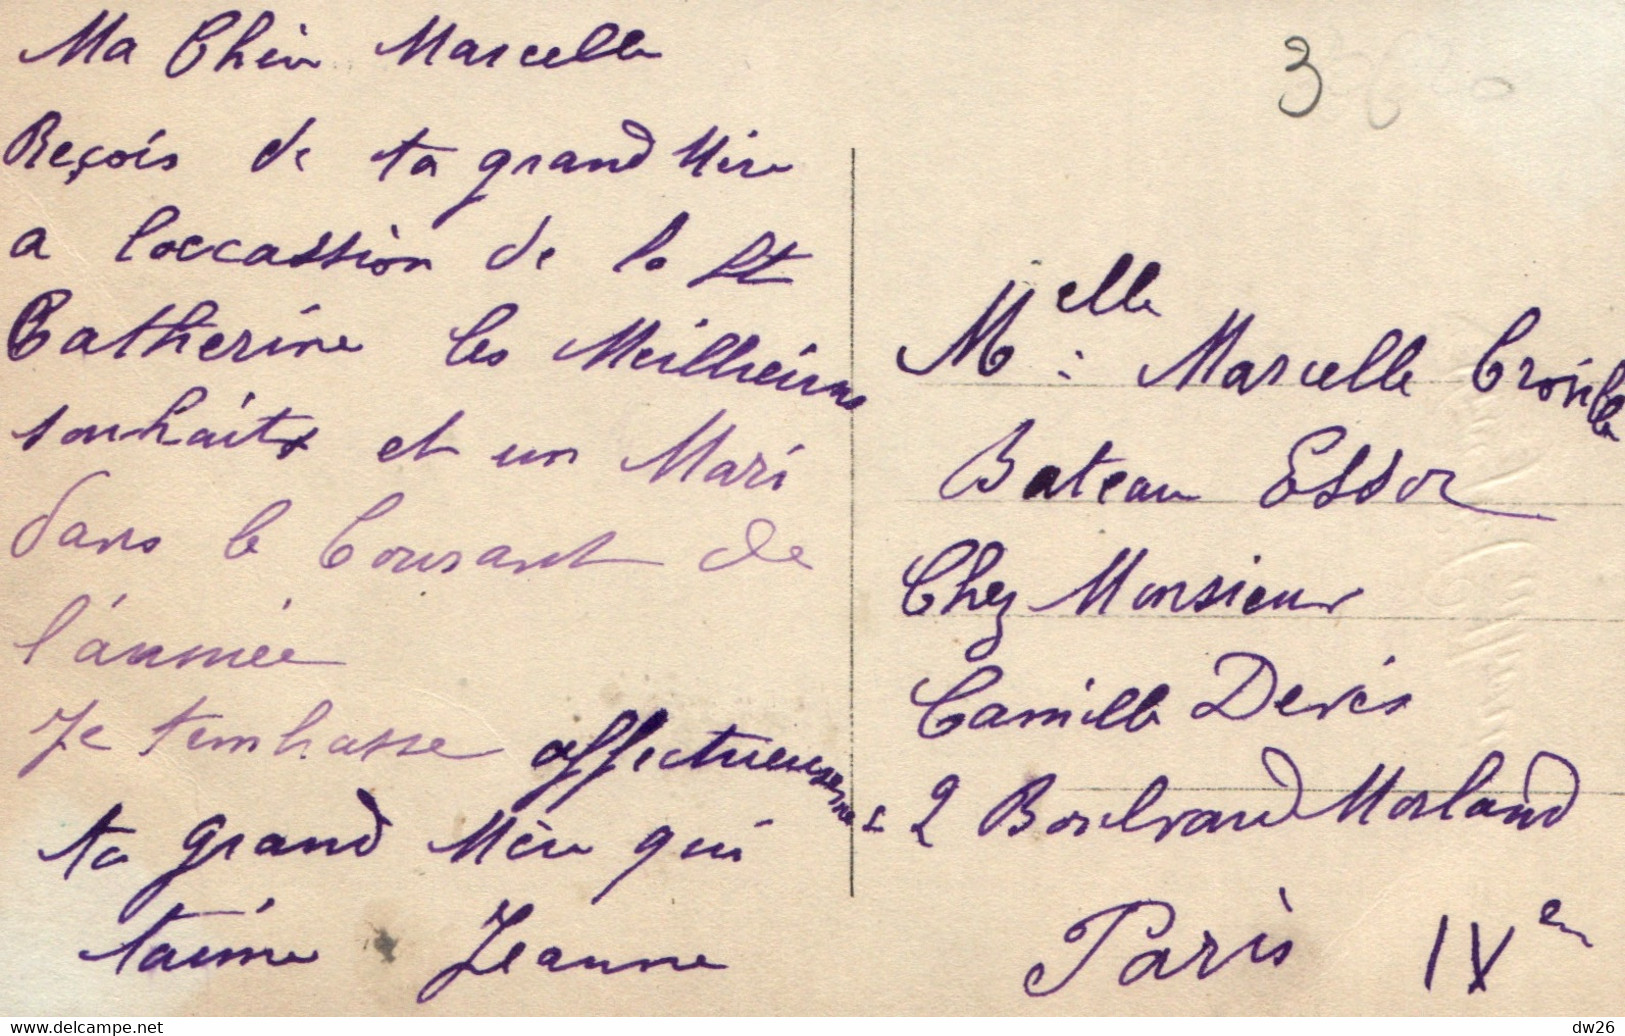 Ma Chère Marcelle
Reçois de ta grand Mère
a l'occassion de la St
Catherine les Meillieures
souhaits et un Mari
dans le Courant de
l'année
Je tembrasse affectueusement
ta grand Mère qui
t'aime Jeanne
3
Melle : Marcelle
Bateau Essor
Chez Monsieur
Camille
2 Boulevard Morland
Paris IXe
delcampe.net
dw26